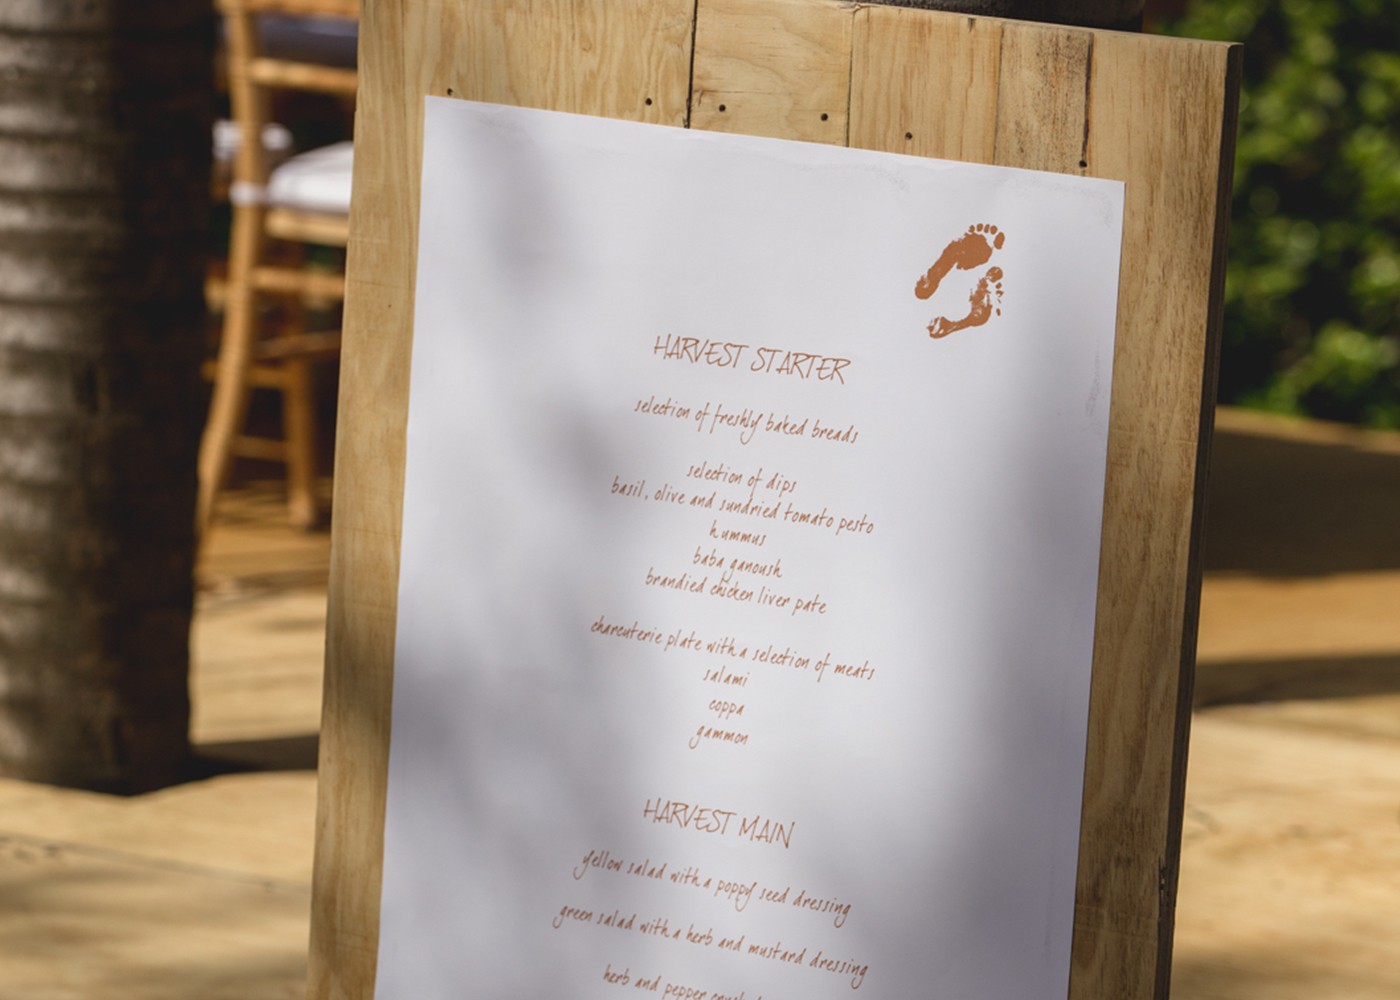 HARVEST STARTER
selection of freshly baked breads
selection of dips
basil, olive and sundried tomato pesto
hummus
baba ganoush
brandied chicken liver pate
charcuterie plate with a selection of meats
salami
coppa
gammon
HARVEST MAIN
yellow salad with a poppy seed dressing
green salad with a herb and mustard dressing
herb and pepper